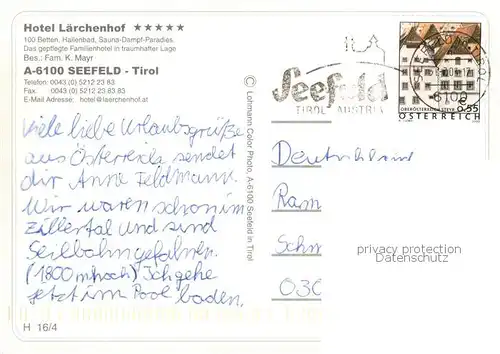 Hotel Lärchenhof ★★★★★
100 Betten, Hallenbad, Sauna-Dampf-Paradies.
Das gepflegte Familienhotel in traumhafter Lage
Bes.: Fam. K. Mayr
A-6100 SEEFELD - Tirol
Telefon: 0043 (0) 5212 23 83
Fax. 0043 (0) 5212 23 83 83
E-Mail Adresse: hotel@laerchenhof.at
Viele liebe Urlaubsgrüße
aus Österreich sendet
dir Anne Feldmann.
Wir waren schon im
Zillertal und sind
Seilbahn gefahren.
(1800 m hoch) Ich gehe
jetzt im Pool baden.
H 16/4
© Lohmann Color Photo, A-6100 Seefeld in Tirol
Seefeld
TIROL AUSTRIA
6100
OBERÖSTERREICH STEYR
0,55
ÖSTERREICH
Deutschland
Ram
Schm
030
privacy protection
Datenschutz